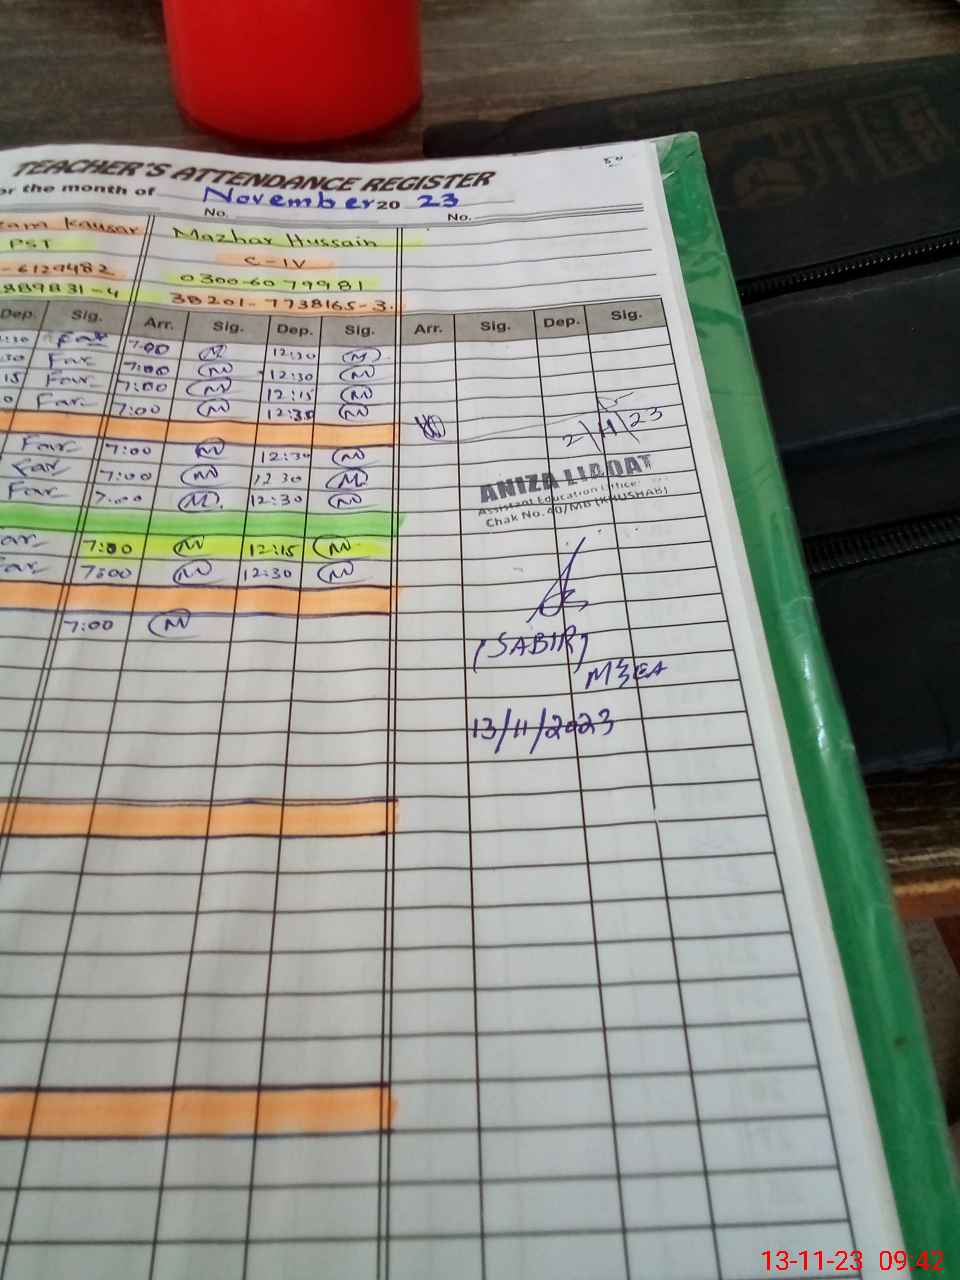 TEACHER'S ATTENDANCE REGISTER
or the month of November 20 23
No. No.
Kausar Mazhar Hussain
PST C-IV
-6129482 0300-6079981
889831-4 38201-7738165-3.
Dep. Sig. Arr. Sig. Dep. Sig. Arr. Sig. Dep. Sig.
:30 Far 7:00 M 12:30 M
:30 Far 7:00 M 12:30 M
15 Far 7:00 M 12:15 M
0 Far 7:00 M 12:30 M
2/11/23
Far 7:00 M 12:30 M
Far 7:00 M 12 30 M
Far 7:00 M 12:30 M
ANIZA LIAQAT
Assistant Education Officer
Chak No. 40/MB (KHUSHAB)
ar 7:00 M 12:15 M
Far 7:00 M 12:30 M
7:00 M
(SABIR)
MEA
13/11/2023
13-11-23 09:42